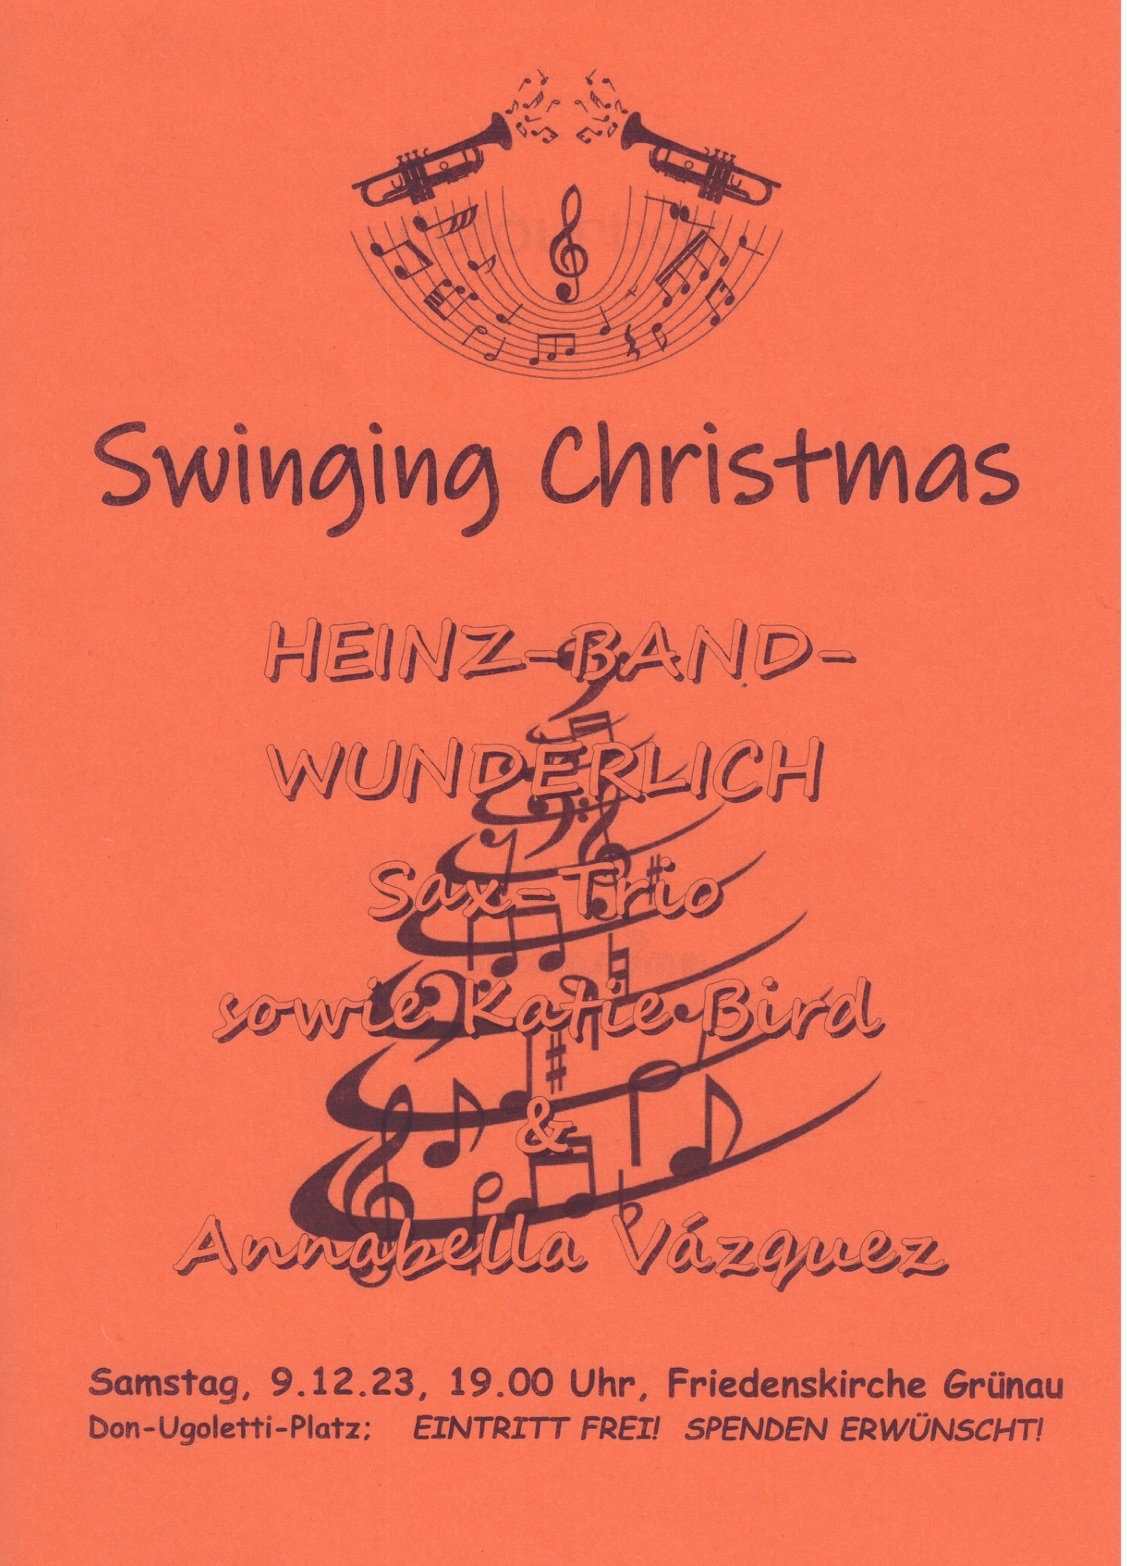 Swinging Christmas
HEINZ-BAND-
WUNDERLICH
Sax-Trio
sowie Katie Bird
&
Annabella Vázquez
Samstag, 9.12.23, 19.00 Uhr, Friedenskirche Grünau
Don-Ugoletti-Platz; EINTRITT FREI! SPENDEN ERWÜNSCHT!